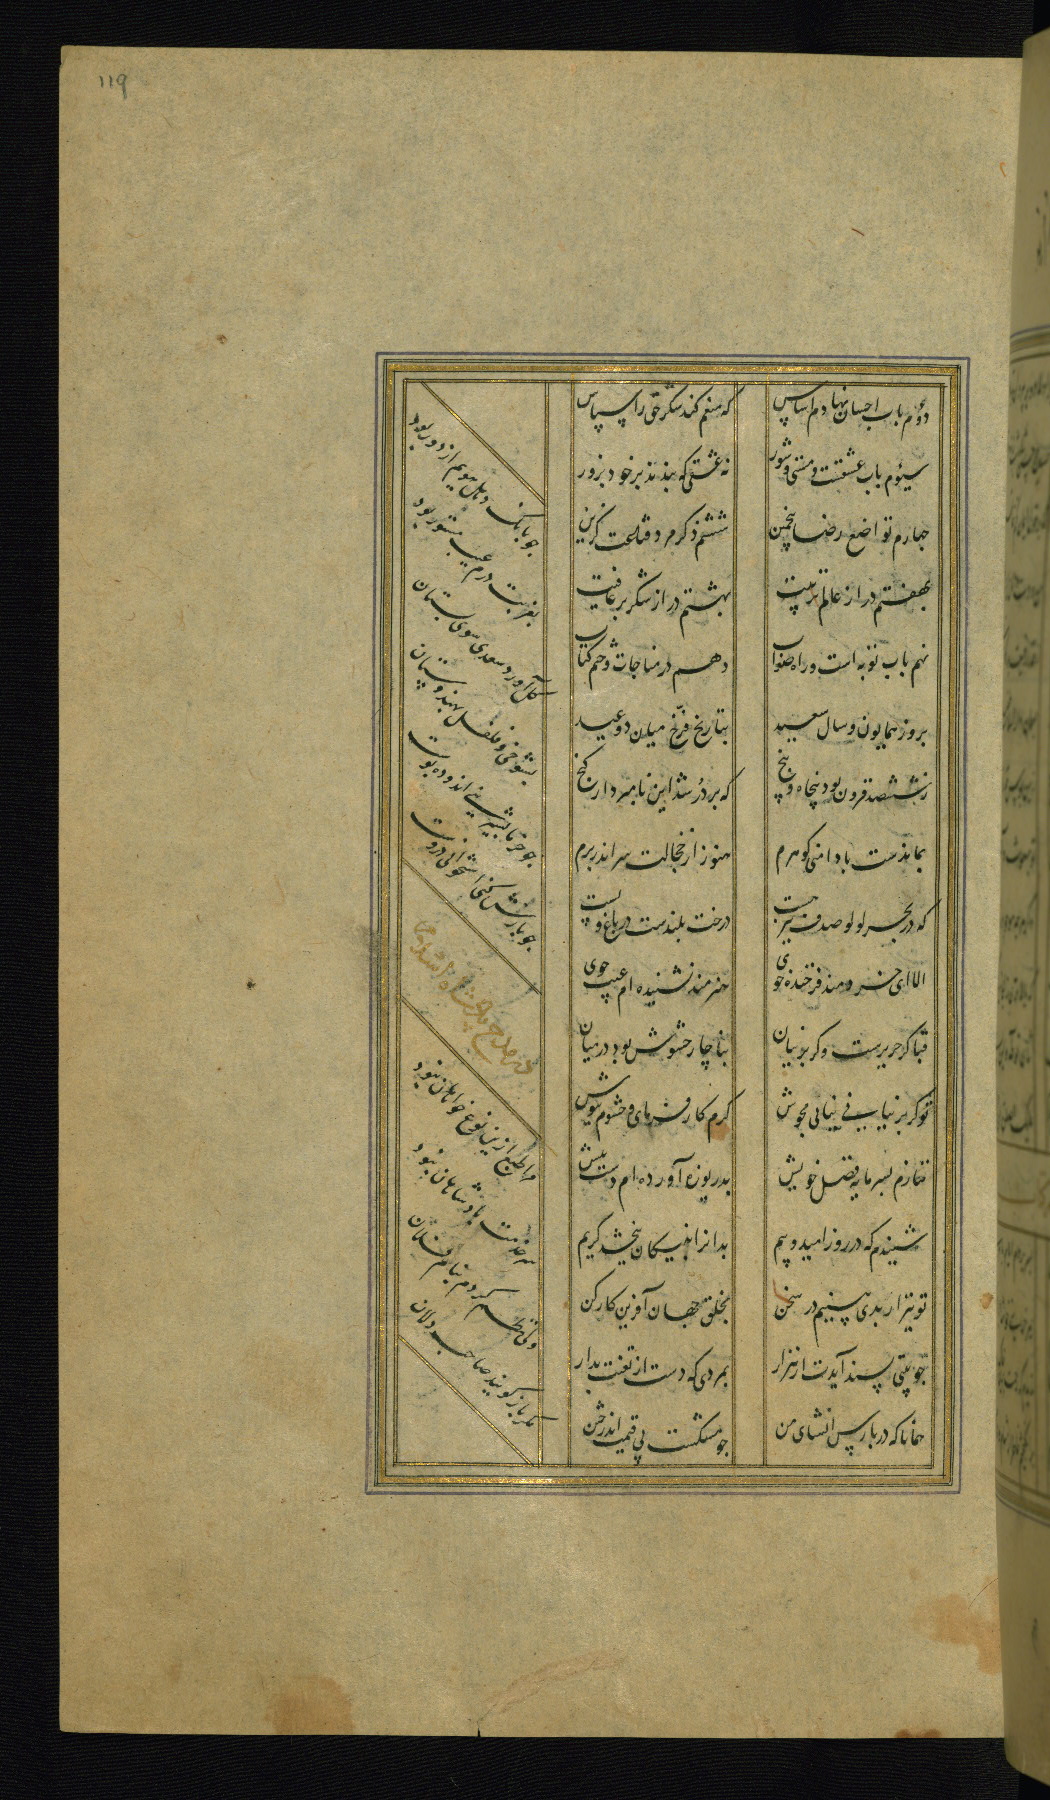 119
دوم باب احسان نهادم اساس که منعم کند شکر حق را سپاس
سیوم باب عشقست و مستی و شور نه عشقی که بندند بر خود بزور
چهارم تواضع رضا پنجمین ششم ذکر مرد قناعت گزین
بهفتم در از عالم تربیت بهشتم در از شکر بر عافیت
نهم باب توبه است و راه صواب دهم در مناجات و ختم کتاب
بروز همایون و سال سعید بتاریخ فرّخ میان دو عید
ز ششصد فزون بود پنجاه و پنج که پر در شد این نامبردار گنج
بماندست با دامنی گوهرم هنوز از خجالت سر اندر برم
که در بحر لولو صدف نیز هست درخت بلندست در باغ و پست
الا ای خردمند فرخنده خوی هنرمند نشنیده ام عیب جوی
قبا گر حریرست و گر پرنیان بناچار حشوش بود در میان
تو گر پرنیانی نیابی مجوش کرم کار فرمای و حشوم بپوش
ننازم بسرمایه فضل خویش بدریوزه آورده ام دست پیش
شنیدم که در روز امید و بیم بدانرا به نیکان ببخشد کریم
تو نیز ار بدی بینیم در سخن بخلق جهان آفرین کار کن
چو بیتی پسند آیدت از هزار بمردی که دست از تعنت بدار
همانا که در پارس انشای من چو مشکست بی قیمت اندر ختن
چو بانک دهل هولم از دور بود
بغیبت درم عیب مستور بود
گل آورد سعدی سوی بوستان
بشوخی و فلفل بهندوستان
چو خرما بشیرینی اندوده پوست
چو بازش کنی استخوانی دروست
در مدح پادشاه
مرا طبع ازین نوع خواهان نبود
سر مدحت پادشاهان نبود
ولی نظم کردم بنام فلان
مگر باز گویند صاحب دلان